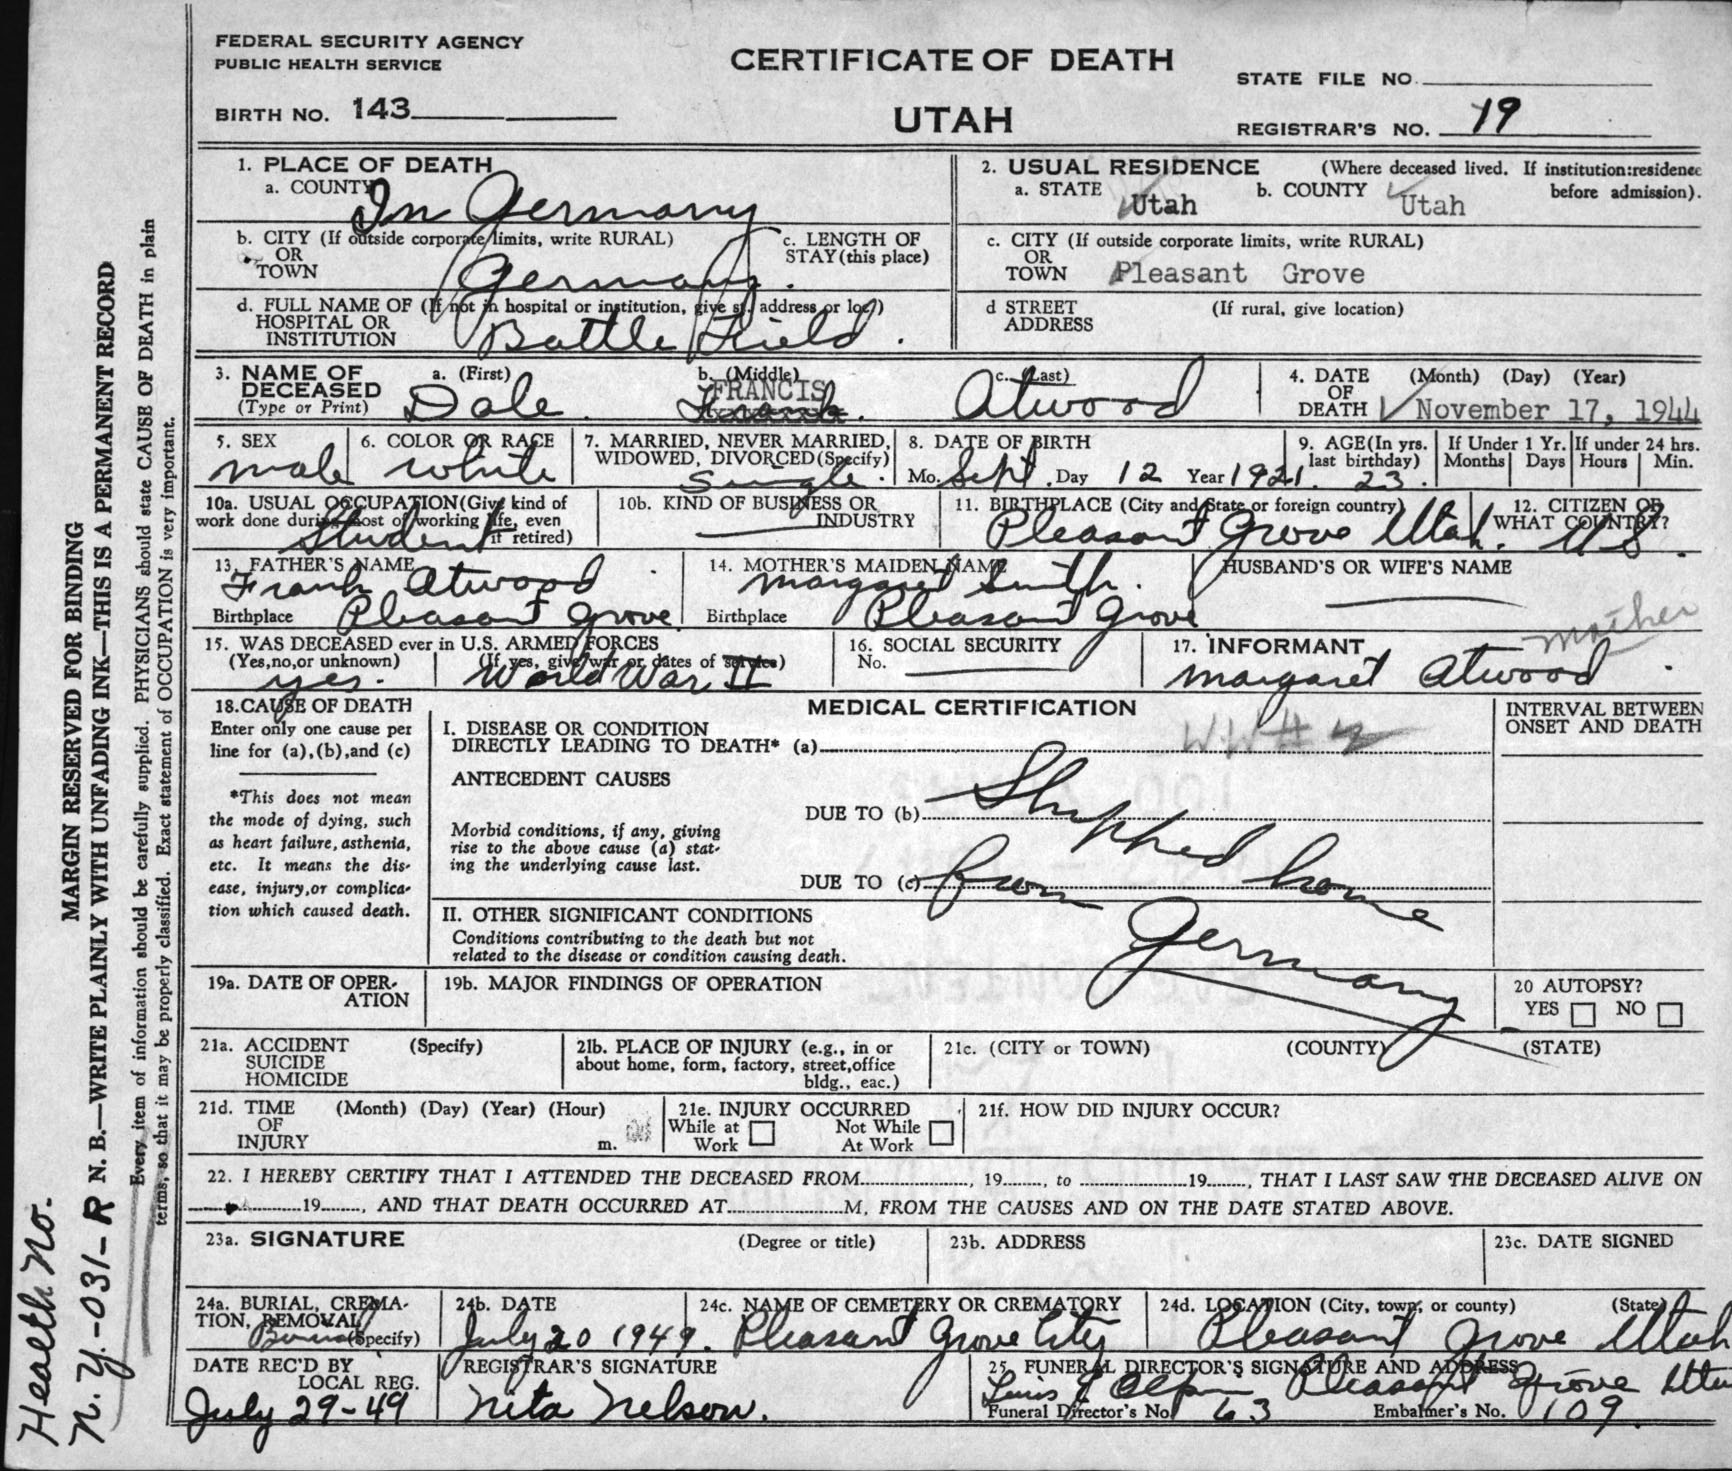 FEDERAL SECURITY AGENCY
PUBLIC HEALTH SERVICE
BIRTH NO. 143
CERTIFICATE OF DEATH
UTAH
STATE FILE NO.
REGISTRAR'S NO. 19
1. PLACE OF DEATH
a. COUNTY In Germany
b. CITY (If outside corporate limits, write RURAL)
OR
TOWN Germany.
c. LENGTH OF
STAY (this place)
d. FULL NAME OF (If not in hospital or institution, give st. address or loc.)
HOSPITAL OR
INSTITUTION Battle Field.
2. USUAL RESIDENCE (Where deceased lived. If institution:residence
before admission).
a. STATE Utah b. COUNTY Utah
c. CITY (If outside corporate limits, write RURAL)
OR
TOWN Pleasant Grove
d STREET (If rural, give location)
ADDRESS
3. NAME OF
DECEASED
(Type or Print)
a. (First) Dale.
b. (Middle) FRANCIS
c. (Last) Atwood
4. DATE (Month) (Day) (Year)
OF
DEATH November 17, 1944
5. SEX
male
6. COLOR OR RACE
white
7. MARRIED, NEVER MARRIED,
WIDOWED, DIVORCED (Specify)
Single.
8. DATE OF BIRTH
Mo. Sept. Day 12 Year 1921.
9. AGE (In yrs.
last birthday)
23.
If Under 1 Yr.
Months Days
If under 24 hrs.
Hours Min.
10a. USUAL OCCUPATION (Give kind of
work done during most of working life, even
if retired)
Student
10b. KIND OF BUSINESS OR
INDUSTRY
11. BIRTHPLACE (City and State or foreign country)
Pleasant Grove Utah.
12. CITIZEN OF
WHAT COUNTRY?
US.
13. FATHER'S NAME
Frank Atwood
Birthplace Pleasant Grove
14. MOTHER'S MAIDEN NAME
Margaret Smith.
Birthplace Pleasant Grove
HUSBAND'S OR WIFE'S NAME
15. WAS DECEASED ever in U.S. ARMED FORCES
(Yes,no,or unknown) (If yes, give war or dates of service)
yes. World War II
16. SOCIAL SECURITY
No.
17. INFORMANT mother
Margaret Atwood
18. CAUSE OF DEATH
Enter only one cause per
line for (a),(b),and (c)
*This does not mean
the mode of dying, such
as heart failure, asthenia,
etc. It means the dis-
ease, injury, or complica-
tion which caused death.
MEDICAL CERTIFICATION
INTERVAL BETWEEN
ONSET AND DEATH
I. DISEASE OR CONDITION
DIRECTLY LEADING TO DEATH* (a) WW # 2
ANTECEDENT CAUSES
Morbid conditions, if any, giving
rise to the above cause (a) stat-
ing the underlying cause last.
DUE TO (b) Shipped home
DUE TO (c) from Germany
II. OTHER SIGNIFICANT CONDITIONS
Conditions contributing to the death but not
related to the disease or condition causing death.
19a. DATE OF OPER-
ATION
19b. MAJOR FINDINGS OF OPERATION
20 AUTOPSY?
YES NO
21a. ACCIDENT (Specify)
SUICIDE
HOMICIDE
21b. PLACE OF INJURY (e.g., in or
about home, form, factory, street, office
bldg., eac.)
21c. (CITY or TOWN) (COUNTY) (STATE)
21d. TIME (Month) (Day) (Year) (Hour)
OF
INJURY m.
21e. INJURY OCCURRED
While at Work Not While At Work
21f. HOW DID INJURY OCCUR?
22. I HEREBY CERTIFY THAT I ATTENDED THE DECEASED FROM, 19, to 19, THAT I LAST SAW THE DECEASED ALIVE ON
19, AND THAT DEATH OCCURRED AT M, FROM THE CAUSES AND ON THE DATE STATED ABOVE.
23a. SIGNATURE (Degree or title)
23b. ADDRESS
23c. DATE SIGNED
24a. BURIAL, CREMA-
TION, REMOVAL
Burial (Specify)
24b. DATE
July 20 1949.
24c. NAME OF CEMETERY OR CREMATORY
Pleasant Grove City
24d. LOCATION (City, town, or county) (State)
Pleasant Grove Utah
DATE REC'D BY
LOCAL REG.
July 29-49
REGISTRAR'S SIGNATURE
Nita Nelson.
25. FUNERAL DIRECTOR'S SIGNATURE AND ADDRESS
Pleasant Grove Utah
Funeral Director's No. 63 Embalmer's No. 109.
MARGIN RESERVED FOR BINDING
N. B.—WRITE PLAINLY WITH UNFADING INK—THIS IS A PERMANENT RECORD
Every item of information should be carefully supplied. PHYSICIANS should state CAUSE OF DEATH in plain
terms, so that it may be properly classified. Exact statement of OCCUPATION is very important.
Health No.
N.Y.-031-R